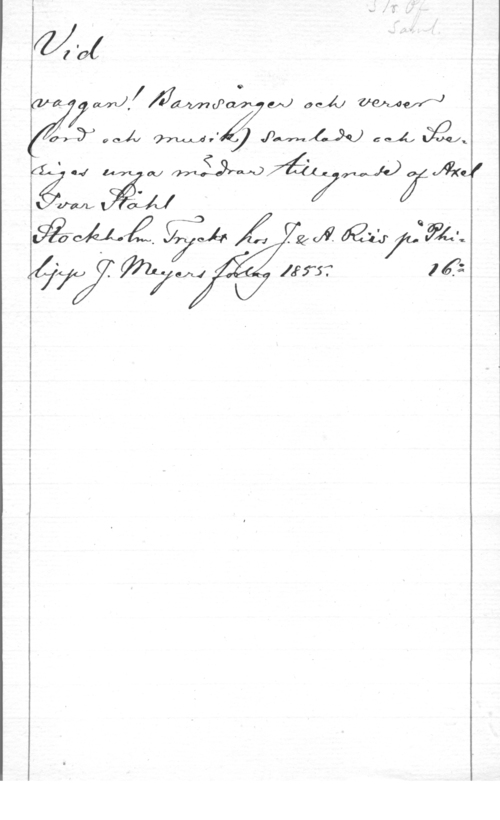 Vid
vaggan! Barnsånger och verser
(ord och musik) samlade och Sve-
riges unga mödrar tillegnade af Axel
Ivar Ståhl
Stockholm. Tryckt hos J. & A. Riis på Phi-
lipp J. Meyers förlag 1855. 16:o